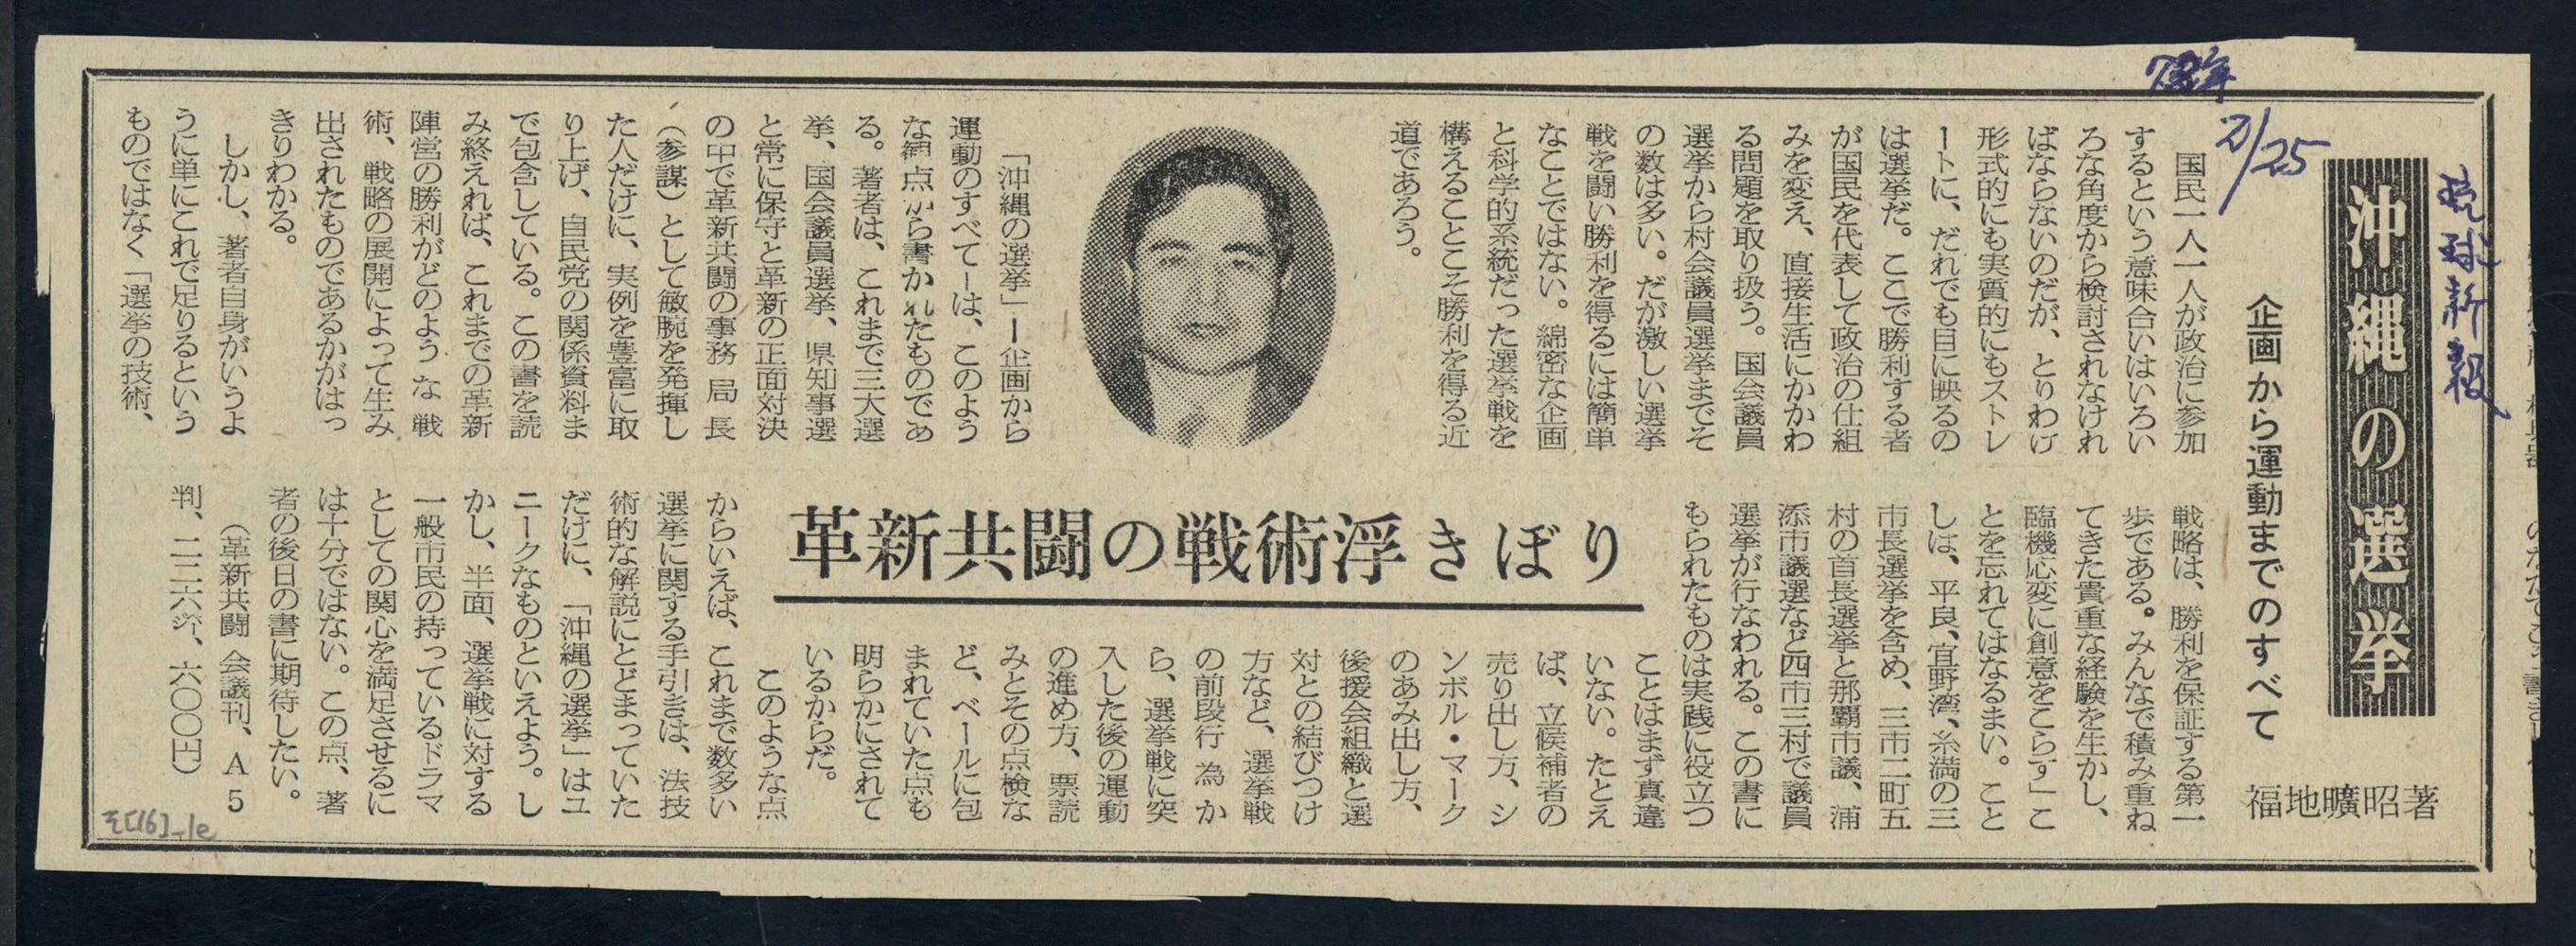 琉球新報
7/25
沖縄の選挙
企画から運動までのすべて
福地曠昭著
国民一人一人が政治に参加
するという意味合いはいろい
ろな角度から検討されなけれ
ばならないのだが、とりわけ
形式的にも実質的にもストレ
ートに、だれでも目に映るの
は選挙だ。ここで勝利する者
が国民を代表して政治の仕組
みを変え、直接生活にかかわ
る問題を取り扱う。国会議員
選挙から村会議員選挙までそ
の数は多い。だが激しい選挙
戦を闘い勝利を得るには簡単
なことではない。綿密な企画
と科学的系統だった選挙戦を
構えることこそ勝利を得る近
道であろう。
「沖縄の選挙」ー企画から
運動のすべてーは、このよう
な観点から書かれたものであ
る。著者は、これまで三大選
挙、国会議員選挙、県知事選
と常に保守と革新の正面対決
の中で革新共闘の事務局長
（参謀）として敏腕を発揮し
た人だけに、実例を豊富に取
り上げ、自民党の関係資料ま
で包含している。この書を読
み終えれば、これまでの革新
陣営の勝利がどのような戦
術、戦略の展開によって生み
出されたものであるかがはっ
きりわかる。
しかし、著者自身がいうよ
うに単にこれで足りるという
ものではなく「選挙の技術、
戦略は、勝利を保証する第一
歩である。みんなで積み重ね
てきた貴重な経験を生かし、
臨機応変に創意をこらす」こ
とを忘れてはなるまい。こと
しは、平良、宜野湾、糸満の三
市長選挙を含め、三市二町五
村の首長選挙と那覇市議、浦
添市議選など四市三村で議員
選挙が行なわれる。この書に
もられたものは実践に役立つ
革新共闘の戦術浮きぼり
ことはまず真違
いない。たとえ
ば、立候補者の
売り出し方、シ
ンボル・マーク
のあみ出し方、
後援会組織と選
対との結びつけ
方など、選挙戦
の前段行為か
ら、選挙戦に突
入した後の運動
の進め方、票読
みとその点検な
ど、ベールに包
まれていた点も
明らかにされて
いるからだ。
このような点
からいえば、これまで数多い
選挙に関する手引きは、法技
術的な解説にとどまっていた
だけに、「沖縄の選挙」はユ
ニークなものといえよう。し
かし、半面、選挙戦に対する
一般市民の持っているドラマ
としての関心を満足させるに
は十分ではない。この点、著
者の後日の書に期待したい。
（革新共闘会議刊、A5
判、二二六㌻、六〇〇円）